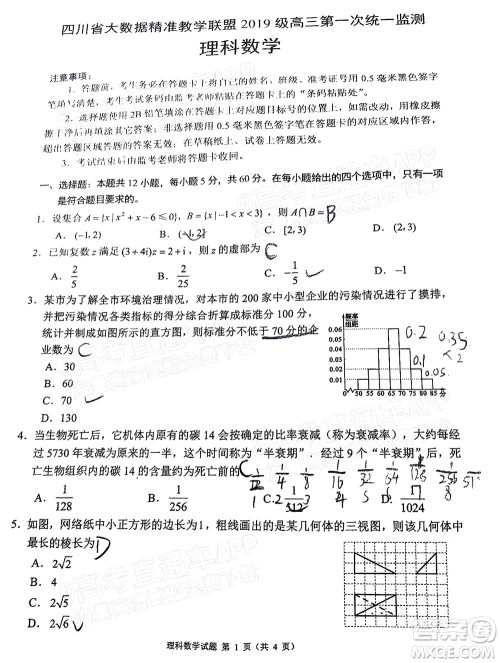 四川省大数据精准教学联盟 2019 级高三第一次统一监测
理科数学
注意事项：
1. 答题前，考生务必在答题卡上将自己的姓名、班级、准考证号用 0.5 毫米黑色签字
笔填写清楚，考生考试条码由监考老师粘贴在答题卡上的“条码粘贴处”。
2. 选择题使用 2B 铅笔填涂在答题卡上对应题目标号的位置上，如需改动，用橡皮擦
擦干净后再填涂其它答案；非选择题用 0.5 毫米黑色签字笔在答题卡的对应区域内作答，
超出答题区域答题的答案无效；在草稿纸上、试卷上答题无效。
3. 考试结束后由监考老师将答题卡收回。
一、选择题：本题共 12 小题，每小题 5 分，共 60 分。在每小题给出的四个选项中，只有一项
是符合题目要求的。
1．设集合 A={x|x²+x−6≤0}，B={x|−1<x<3}，则 A∩B= B
A．(−1, 2) B．(−1, 2] C．[2, 3) D．(−1, 3)
2．已知复数 z 满足 (3+4i)z=2+i，则 z 的虚部为 C
A．2/5 B．1/5 C．−1/5 D．−2/5
3．某市为了解全市环境治理情况，对本市的 200 家中小型企业的污染情况进行了摸排，
并把污染情况各类指标的得分综合折算成标准分 100 分，
统计并制成如图所示的直方图，则标准分不低于 70 分的企
业数为 C
A．30
B．60
C．70
D．130
频率
组距
0.06
0.05
0.04
0.03
0.02
0.01
40 45 50 55 60 65 70 75 80 85 分
0.2 0.35
0.1
4．当生物死亡后，它机体内原有的碳 14 会按确定的比率衰减（称为衰减率），大约每经
过 5730 年衰减为原来的一半，这个时间称为“半衰期”．当经过 9 个“半衰期”后，死
亡生物组织内的碳 14 的含量约为死亡前的 C
1/2 1/4 1/8 1/16 1/32 1/64
A．1/128 B．1/256 C．1/512 D．1/1024
5．如图，网络纸中小正方形的边长为 1，粗线画出的是某几何体的三视图，则该几何体中
最长的棱长为 D
A．2√2
B．4
C．2√5
D．2√6
理科数学试题 第 1 页（共 4 页）